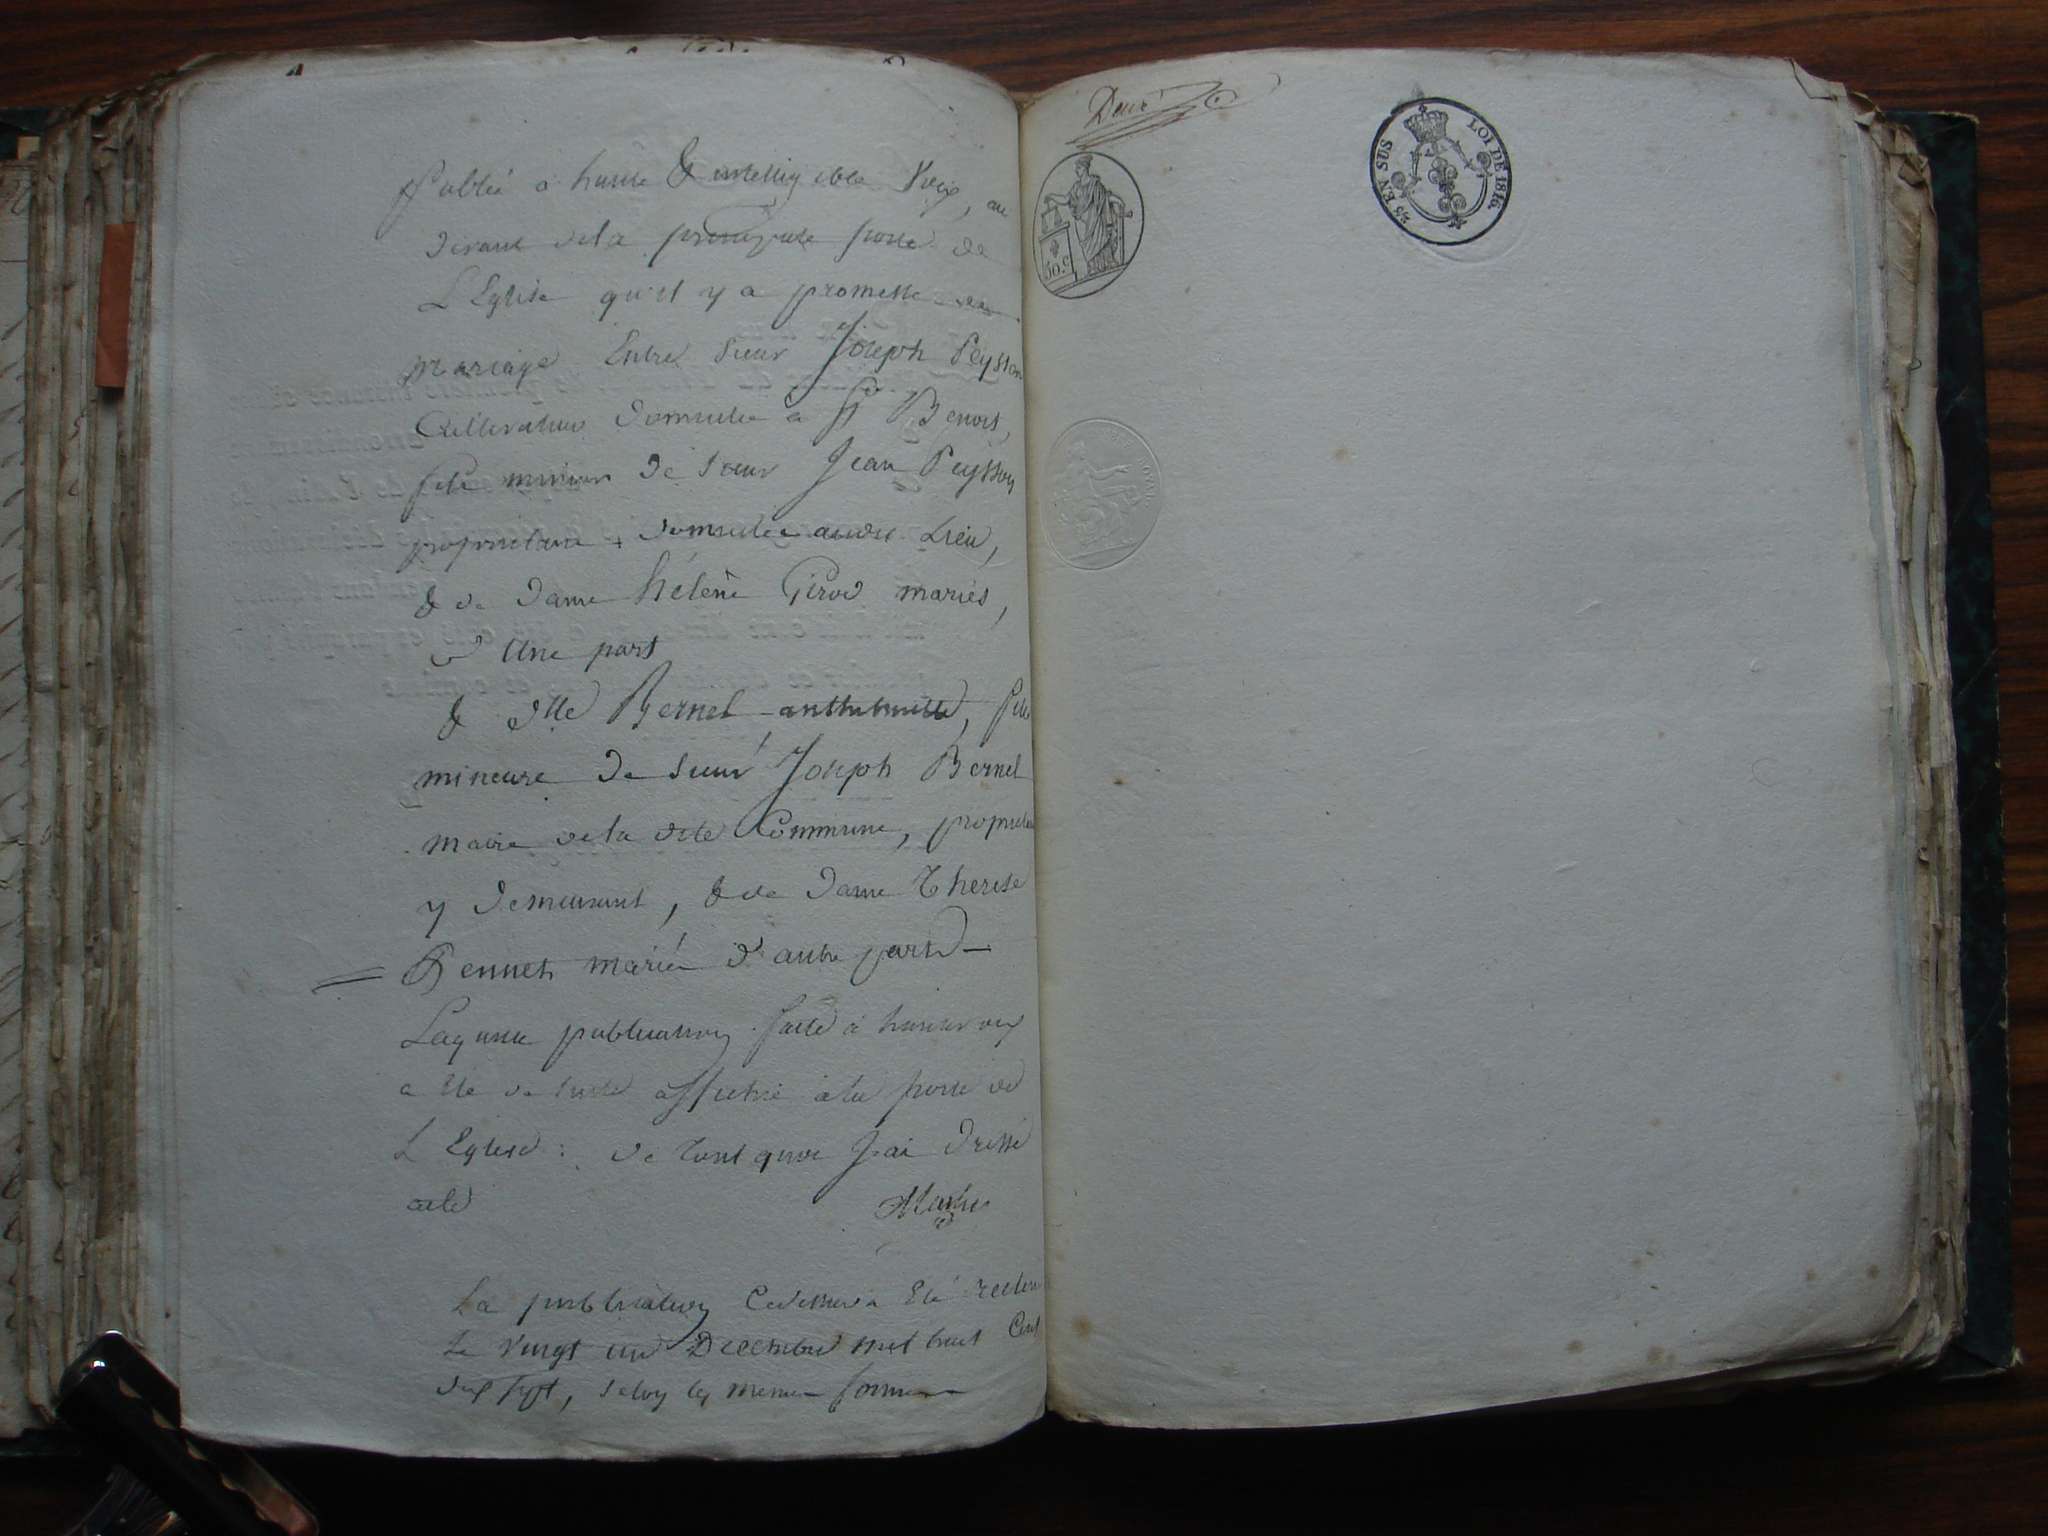 Publié à haute & intelligible Voix, au
devant de la principale porte de
L'Eglise qu'il y a promesse de
mariage Entre Sieur Joseph Peysson
Cultivateur domicilié à St Benoit,
fils mineur de Sieur Jean Peysson
propriétaire domicilié audit Lieu,
& de dame hélène Girod mariés,
d'Une part
& dlle Bernel anthelmette, fille
mineure de Sieur Joseph Bernel
maire de la dite Commune, propriétaire
y demeurant, & de dame Therese
mariés d'autre part
Laquelle publication faite à haute voix
a Eté de suite affichée à la porte de
L'Eglise : de tout quoi J'ai dressé
acte
La publication Cidessus a Eté
Le Vingt un Decembre mil huit Cent
dix sept, selon les memes formes
Deux
10.C
25 EN SUS LOI DE 1816.